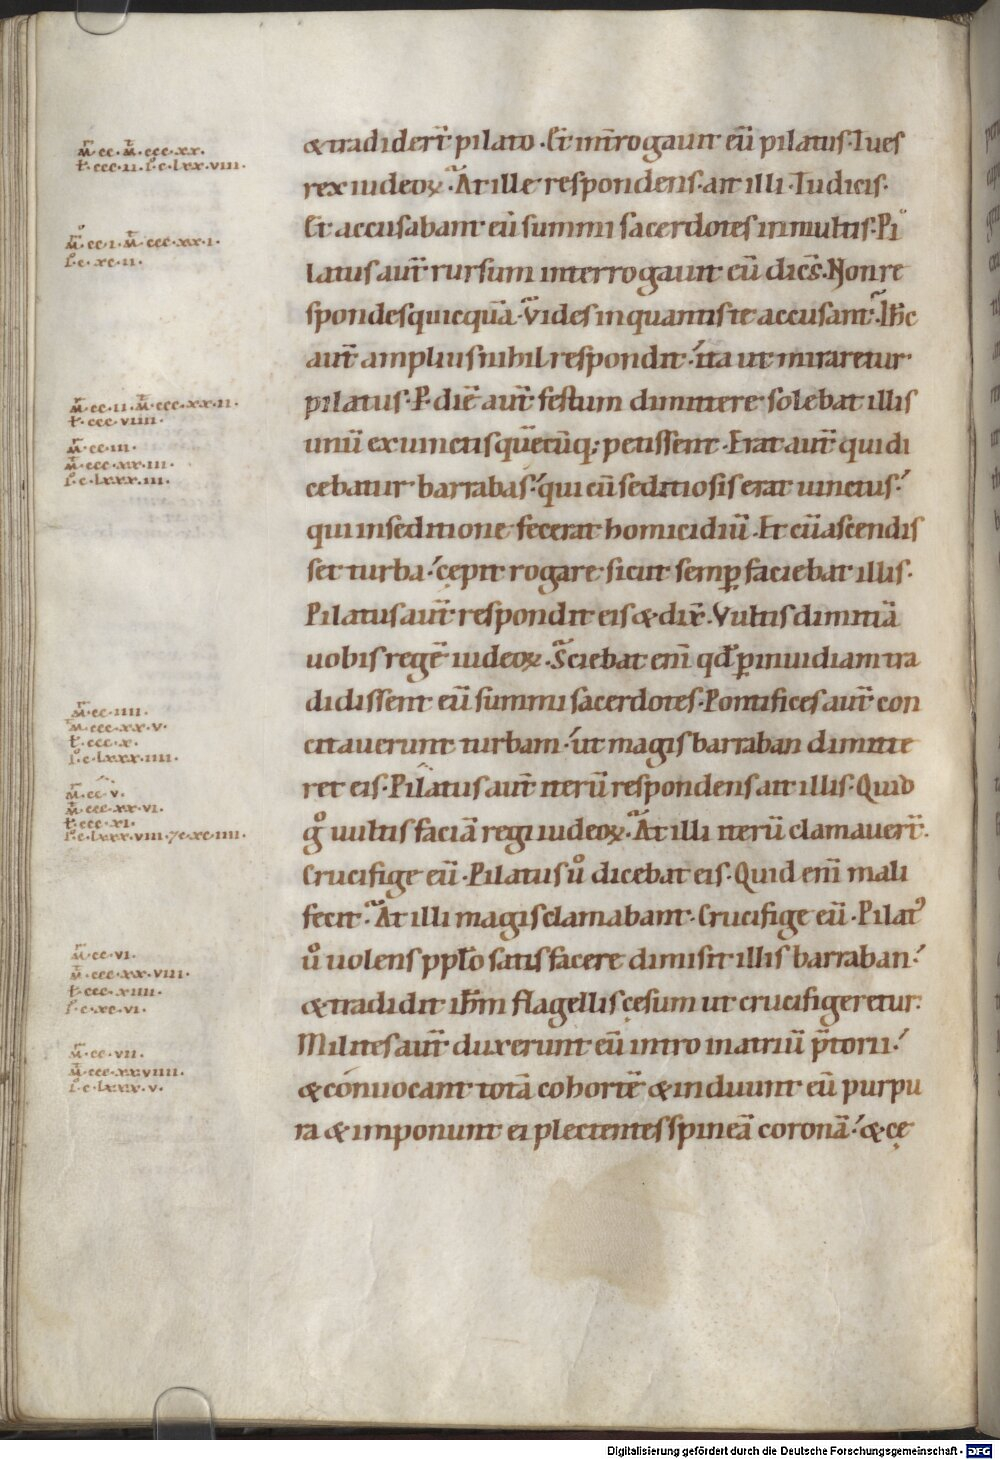 m̅r·cc·m̅t·ccc·xx·
i̅o·ccc·ii·l̅c·c·lxx·viii·
m̅r·cc·i·m̅t·ccc·xx·i·
l̅c·c·xc·ii·
m̅r·cc·ii·m̅t·ccc·xx·ii·
i̅o·ccc·viiii·
m̅r·cc·iii·
m̅t·ccc·xx·iii·
l̅c·c·lxxx·iii·
m̅r·cc·iiii·
m̅t·ccc·xx·v·
i̅o·ccc·x·
l̅c·c·lxxx·iiii·
m̅r·cc·v·
m̅t·ccc·xx·vi·
i̅o·ccc·xi·
l̅c·c·lxxx·viii·⁊c·xc·iiii·
m̅r·cc·vi·
m̅t·ccc·xx·viii·
i̅o·ccc·xiiii·
l̅c·c·xc·vi·
m̅r·cc·vii·
m̅t·ccc·xxviiii·
l̅c·c·lxxx·v·
&tradider̅t pilato. Et int̅rogauit eu̅ pilatus. Tu es
rex iudeoꝝ. At ille respondens. ait illi. Tu dicis.
Et accusabant eu̅ summi sacerdotes in multis. Pi
latus aut̅ rursum interrogauit eu̅ dice̅s. Non re
spondes quicqua̅. Vides in quantis te accusant. Ih̅c
aut̅ amplius nihil respondit. ita ut miraretur
pilatus. P. die̅ aut̅ festum dimittere solebat illis
unu̅ ex uinctis que̅cu̅q; petissent. Erat aut̅ qui di
cebatur barrabas. qui cu̅ seditiosis erat uinctus.
qui in seditione fecerat homicidiu̅. Et cu̅ ascendis
set turba. cępit rogare sicut semꝑ faciebat illis.
Pilatus aut̅ respondit eis & dix̅. Vultis dimitta̅
uobis rege̅ iudeoꝝ. Sciebat eni̅ qd̅ ꝑ inuidiam tra
didissent eu̅ summi sacerdotes. Pontifices aut̅ con
citauerunt turbam. ut magis barraban dimitte
ret eis. Pilatus aut̅ iteru̅ respondens ait illis. Quid
gͦ uultis facia̅ regi iudeoꝝ. At illi iteru̅ clamauer̅t.
Crucifige eu̅. Pilatus uͦ dicebat eis. Quid eni̅ mali
fecit. At illi magis clamabant. Crucifige eu̅. Pilatꝰ
uͦ uolens ppl̅o satis facere dimisit illis barraban.
& tradidit ih̅m flagellis cęsum ut crucifigeretur.
Milites aut̅ duxerunt eu̅ intro in atriu̅ p̅torii.
& conuocant tota̅ cohorte̅ & induunt eu̅ purpu
ra & imponunt ei plectentes spinea̅ corona̅. & cę
Digitalisierung gefördert durch die Deutsche Forschungsgemeinschaft - DFG